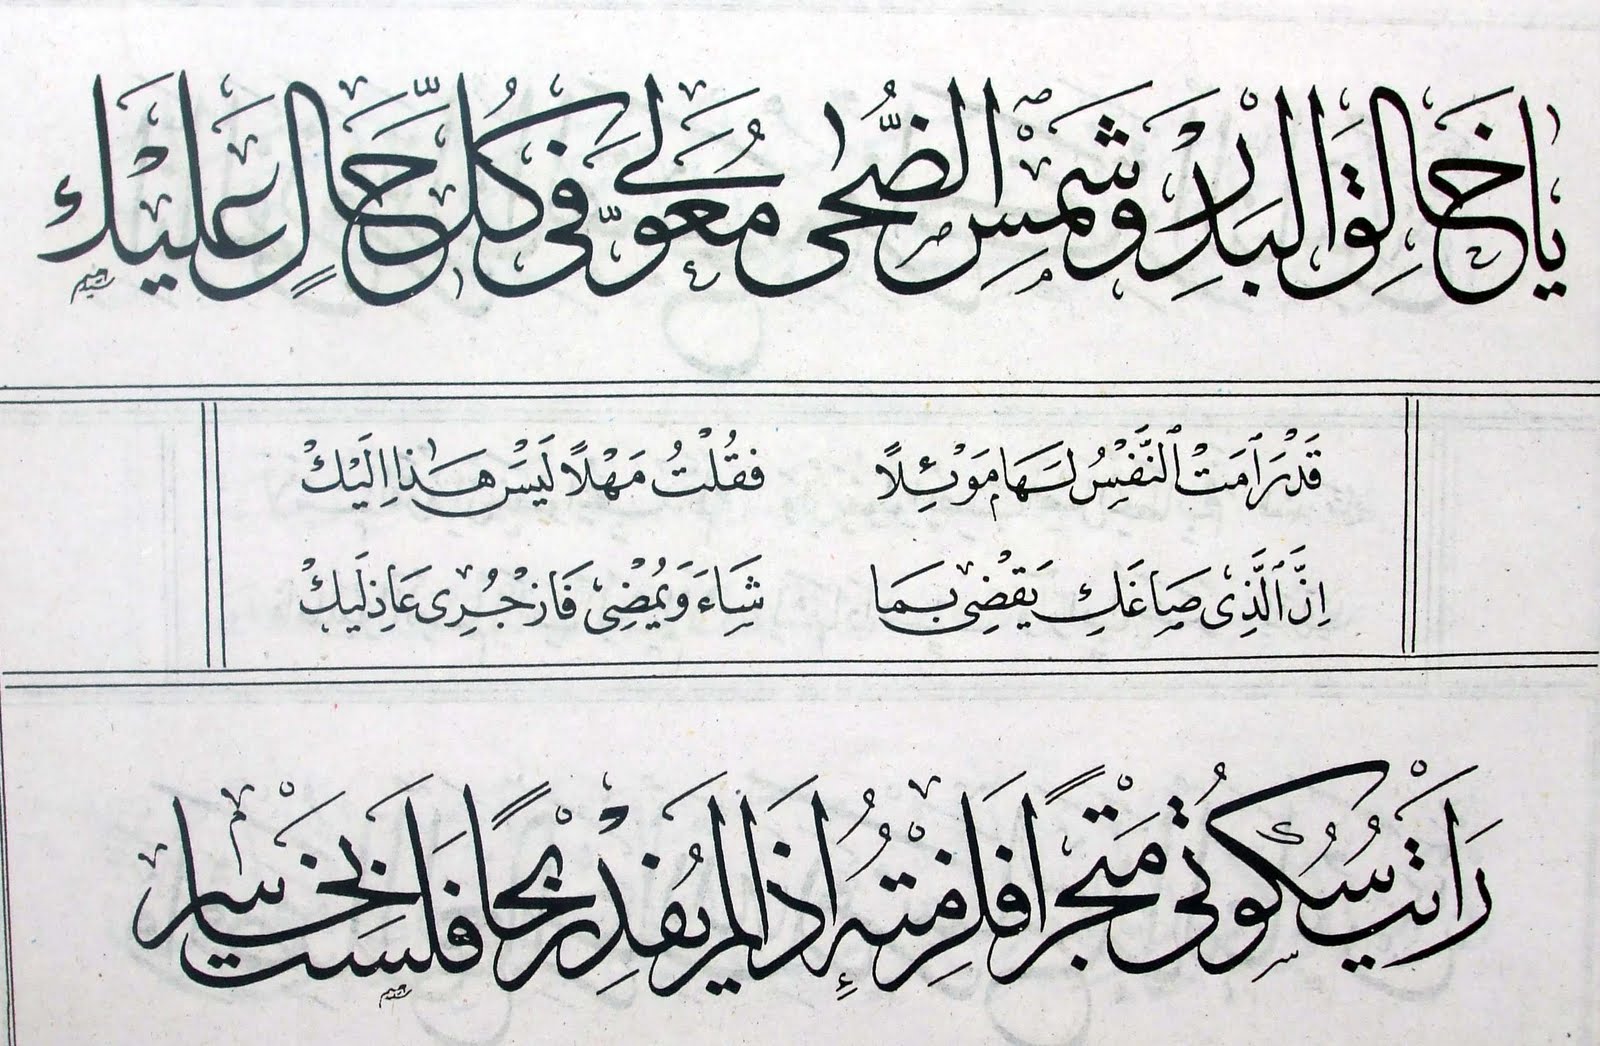 يَا خَالِقَ الْبَدْرِ وَشَمْسِ الضُّحٰى مُعَوَّلِي فِي كُلِّ حَالٍ عَلَيْكْ
قَدْ رَامَتِ ٱلنَّفْسُ لَهَا مَوْئِلًا فَقُلْتُ مَهْلًا لَيْسَ هٰذَا اِلَيْكْ
اِنَّ ٱلَّذِى صَاغَكِ يَقْضِى بِمَا شَاءَ وَيُمْضِى فَازْجُرِى عَاذِلَيْكْ
رَاَيْتُ سُكُوتِي مَتْجَرًا فَلَزِمْتُهُ إِذَا لَمْ يُفِدْ رِبْحًا فَلَسْتُ بِخَاسِرِ